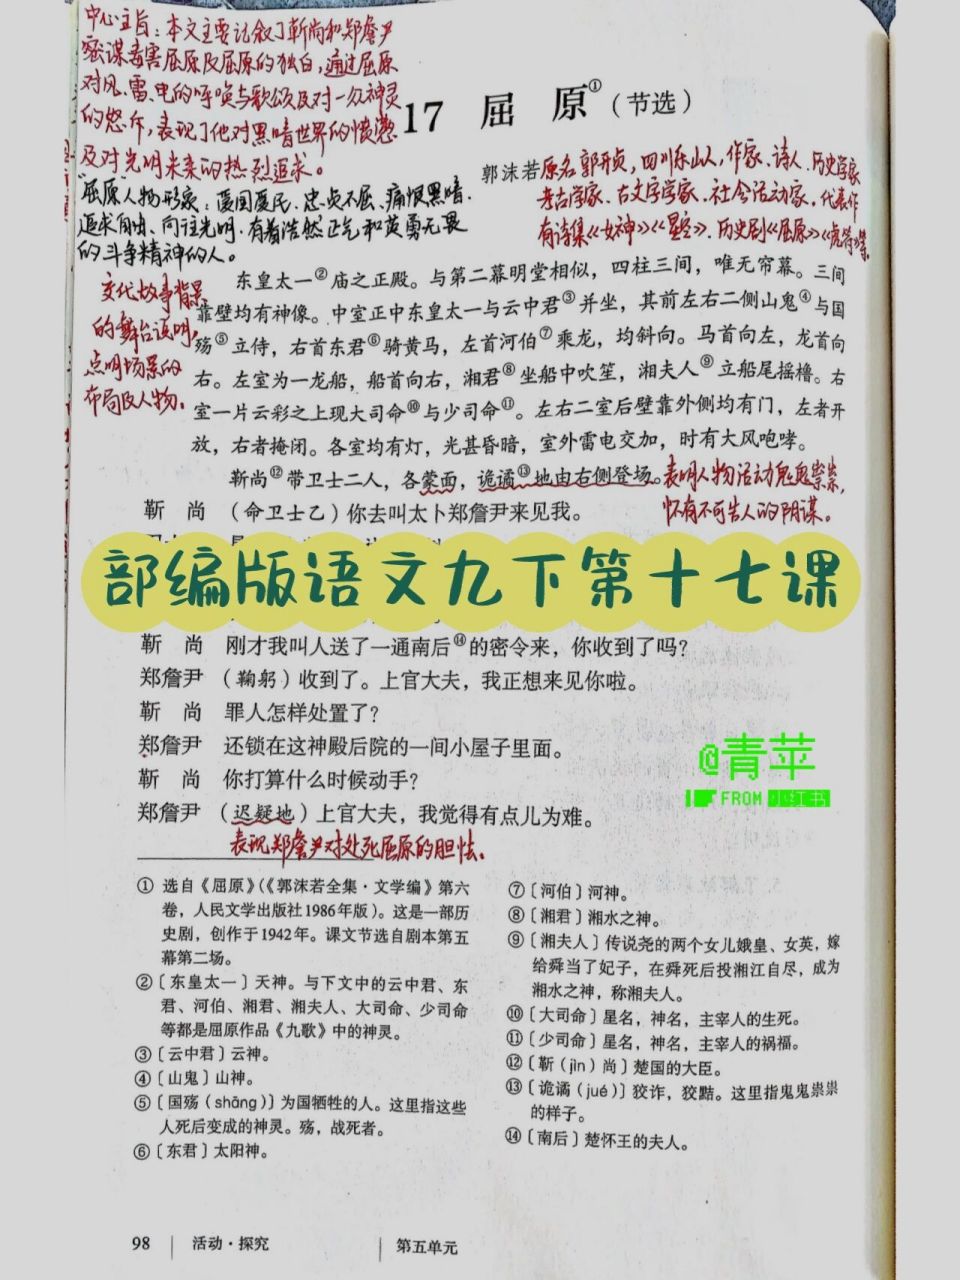 中心主旨：本文主要记叙了靳尚和郑詹尹
密谋毒害屈原及屈原的独白，通过屈原
对风、雷、电的呼唤与歌颂及对一众神灵
的怒斥，表现了他对黑暗世界的愤懑
及对光明未来的热烈追求。
17 屈原①（节选）
郭沫若
原名郭开贞，四川乐山人，作家、诗人、历史学家
考古学家、古文字学家、社会活动家。代表作
有诗集《女神》《星空》、历史剧《屈原》《虎符》等。
屈原人物形象：爱国爱民、忠贞不屈、痛恨黑暗、
追求自由、向往光明、有着浩然正气和英勇无畏
的斗争精神的人。
交代故事背景
的舞台说明，
点明场景的
布局及人物。
东皇太一②庙之正殿。与第二幕明堂相似，四柱三间，唯无帘幕。三间
靠壁均有神像。中室正中东皇太一与云中君③并坐，其前左右二侧山鬼④与国
殇⑤立侍，右首东君⑥骑黄马，左首河伯⑦乘龙，均斜向。马首向左，龙首向
右。左室为一龙船，船首向右，湘君⑧坐船中吹笙，湘夫人⑨立船尾摇橹。右
室一片云彩之上现大司命⑩与少司命⑪。左右二室后壁靠外侧均有门，左者开
放，右者掩闭。各室均有灯，光甚昏暗，室外雷电交加，时有大风咆哮。
靳尚⑫带卫士二人，各蒙面，诡谲⑬地由右侧登场。
表明人物活动鬼鬼祟祟，
怀有不可告人的阴谋。
靳　尚　（命卫士乙）你去叫太卜郑詹尹来见我。
部编版语文九下第十七课
靳　尚　刚才我叫人送了一通南后⑭的密令来，你收到了吗？
郑詹尹　（鞠躬）收到了。上官大夫，我正想来见你啦。
靳　尚　罪人怎样处置了？
郑詹尹　还锁在这神殿后院的一间小屋子里面。
靳　尚　你打算什么时候动手？
郑詹尹　（迟疑地）上官大夫，我觉得有点儿为难。
表现郑詹尹对处死屈原的胆怯。
@青苹
FROM 小红书
① 选自《屈原》（《郭沫若全集·文学编》第六
卷，人民文学出版社1986年版）。这是一部历
史剧，创作于1942年。课文节选自剧本第五
幕第二场。
②〔东皇太一〕天神。与下文中的云中君、东
君、河伯、湘君、湘夫人、大司命、少司命
等都是屈原作品《九歌》中的神灵。
③〔云中君〕云神。
④〔山鬼〕山神。
⑤〔国殇（shāng）〕为国牺牲的人。这里指这些
人死后变成的神灵。殇，战死者。
⑥〔东君〕太阳神。
⑦〔河伯〕河神。
⑧〔湘君〕湘水之神。
⑨〔湘夫人〕传说尧的两个女儿娥皇、女英，嫁
给舜当了妃子，在舜死后投湘江自尽，成为
湘水之神，称湘夫人。
⑩〔大司命〕星名，神名，主宰人的生死。
⑪〔少司命〕星名，神名，主宰人的祸福。
⑫〔靳（jìn）尚〕楚国的大臣。
⑬〔诡谲（jué）〕狡诈，狡黠。这里指鬼鬼祟祟
的样子。
⑭〔南后〕楚怀王的夫人。
98　活动·探究　第五单元